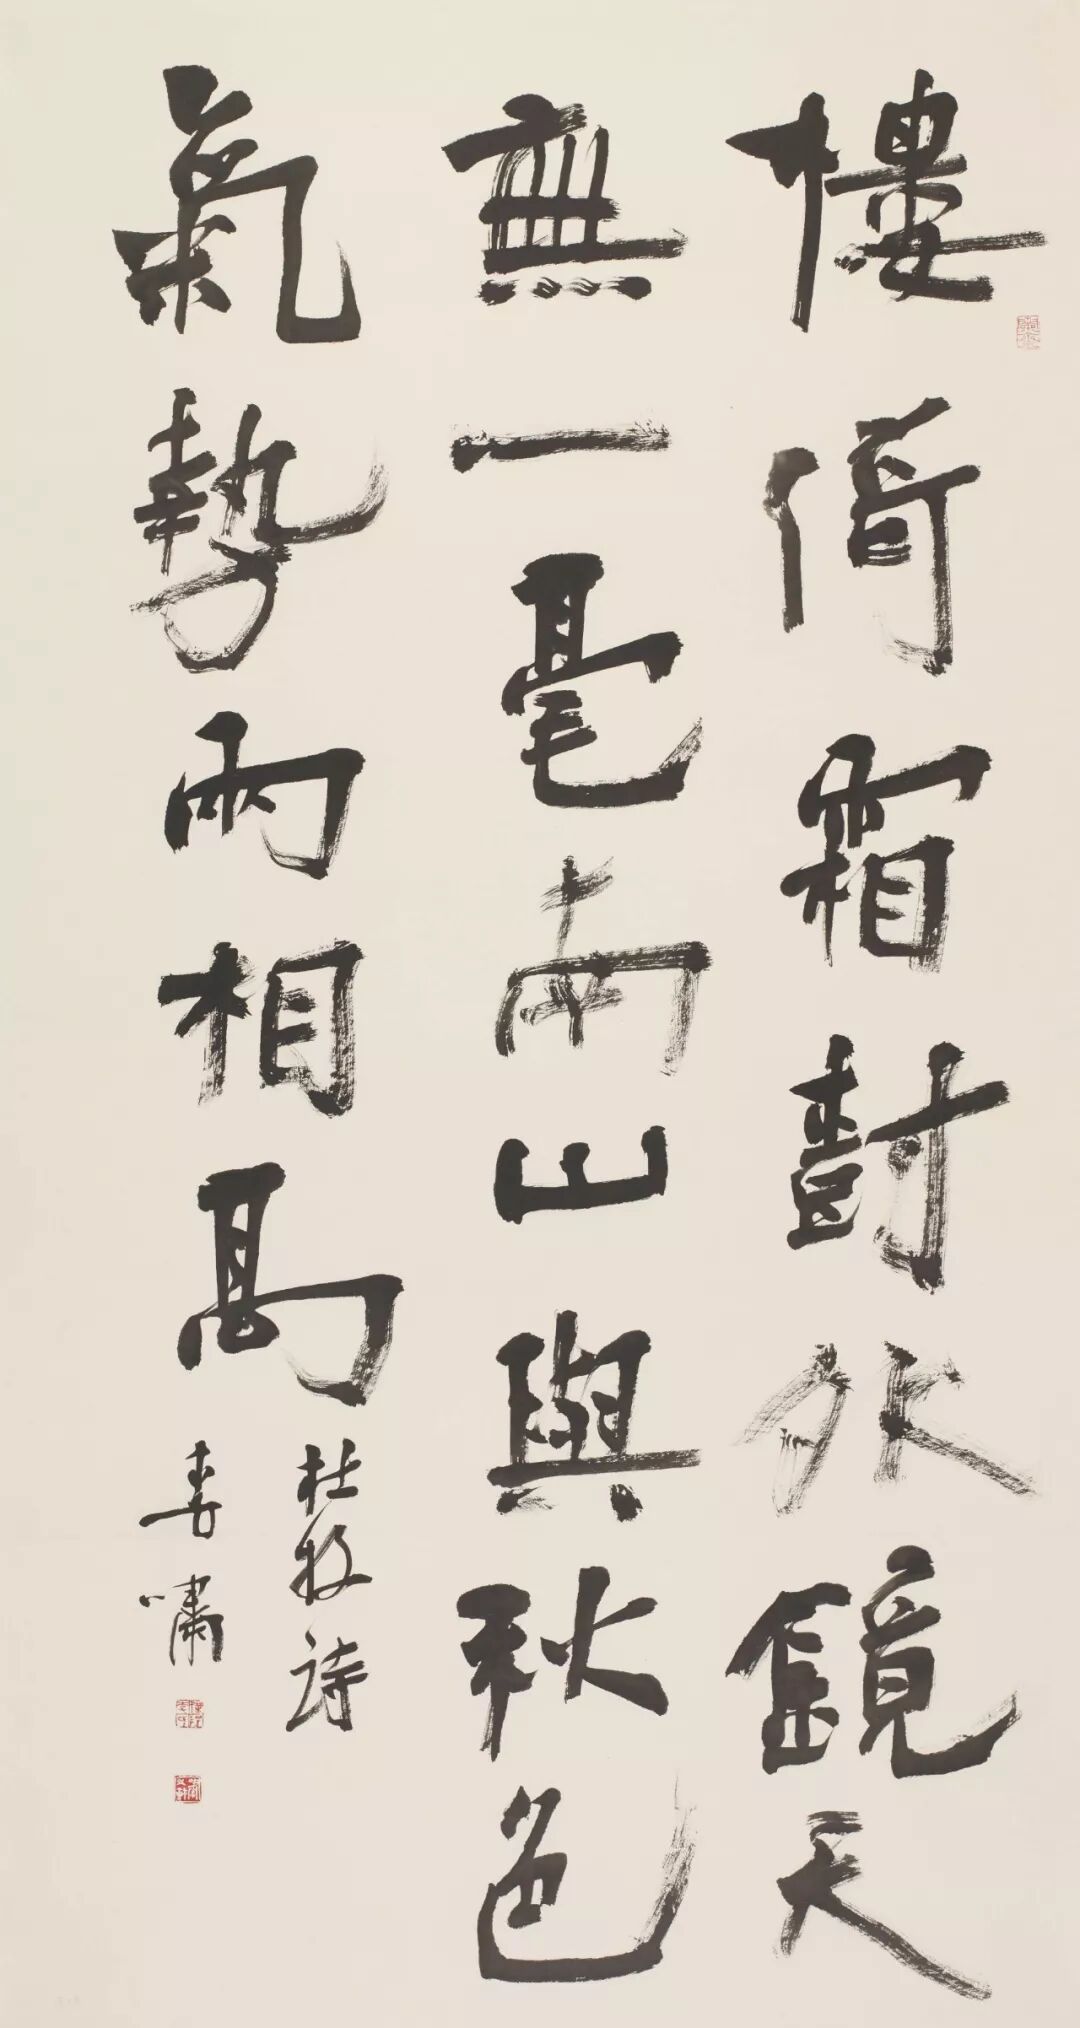 樓倚霜尌外鏡天
無一毫南山與秋色
氣勢兩相高
杜牧詩
嘯